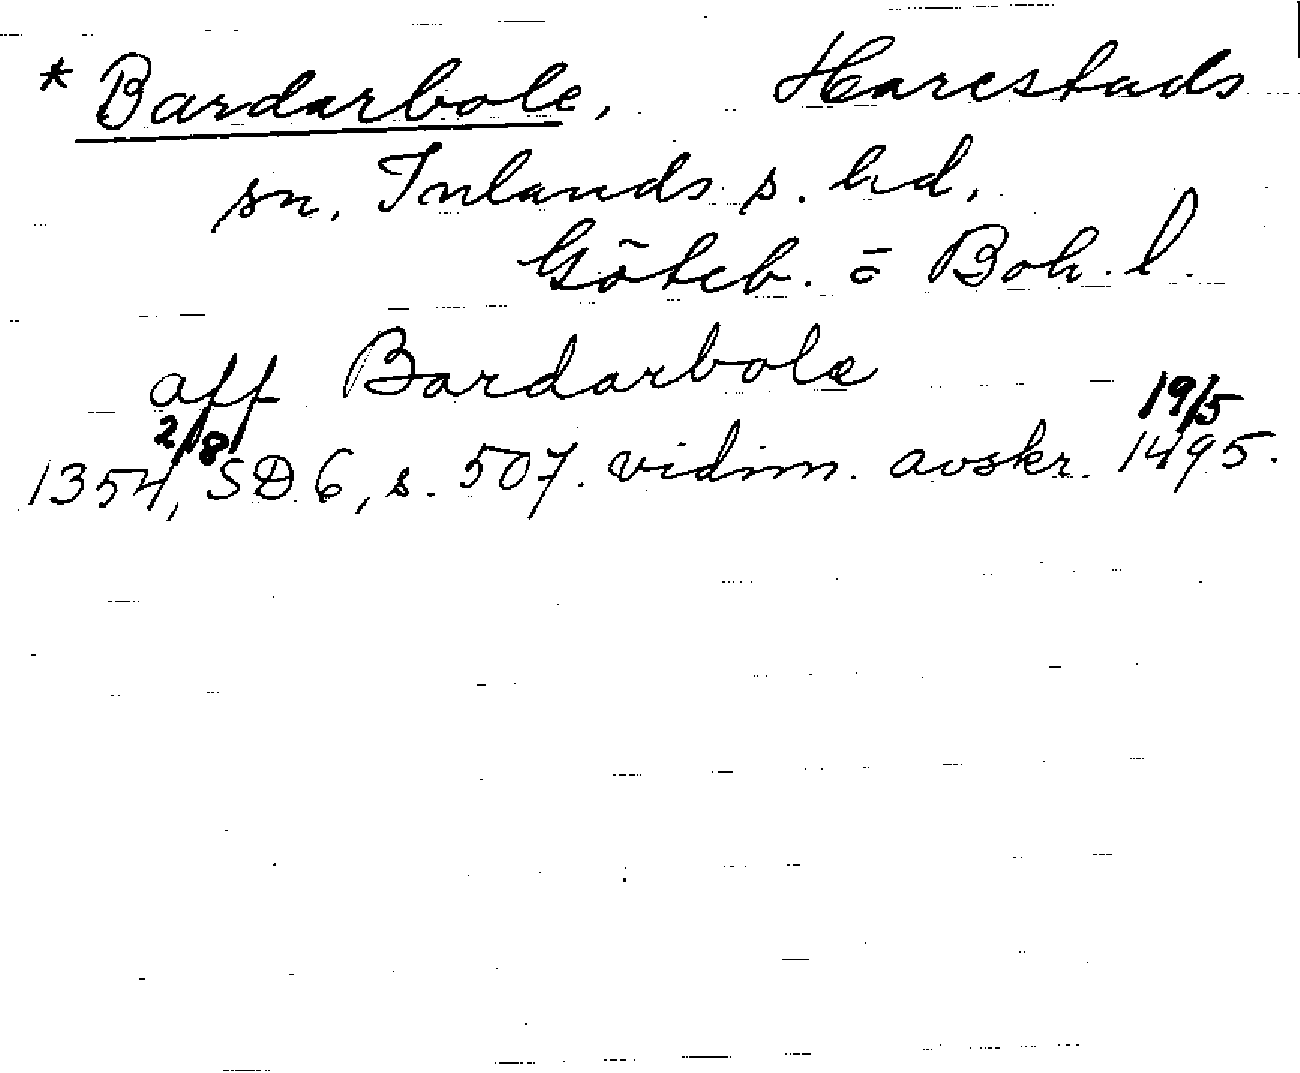 * Bardarbole, Harestads
sn. Inlands s. hd,
Göteb. o Boh. l.
aff Bardarbolæ
2/8 19/5
1354, SD 6, s. 507. vidim. avskr. 1495.